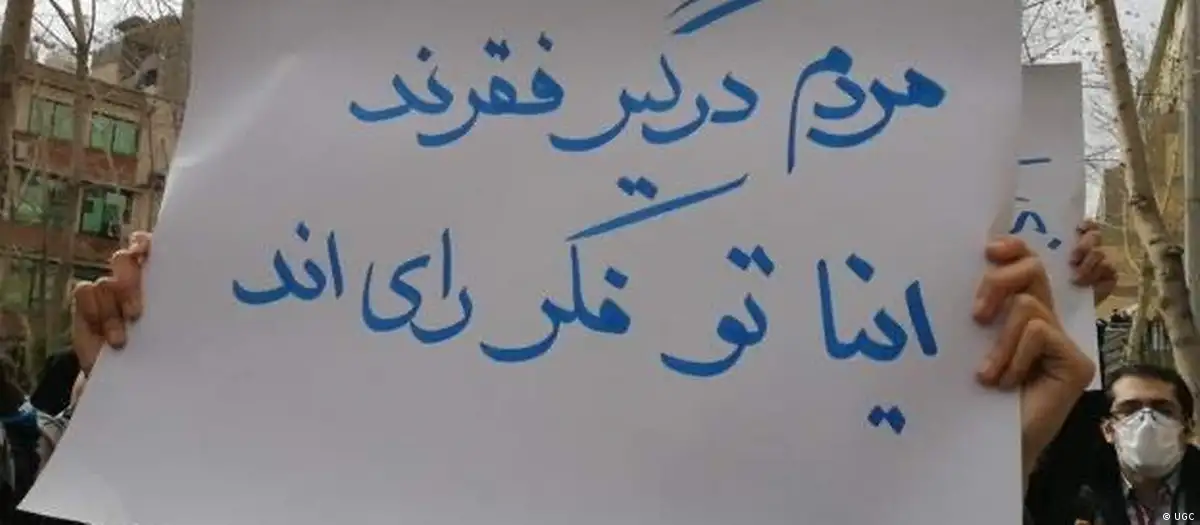 مردم درگیر فقرند
اینا تو فکر رای اند
© UGC